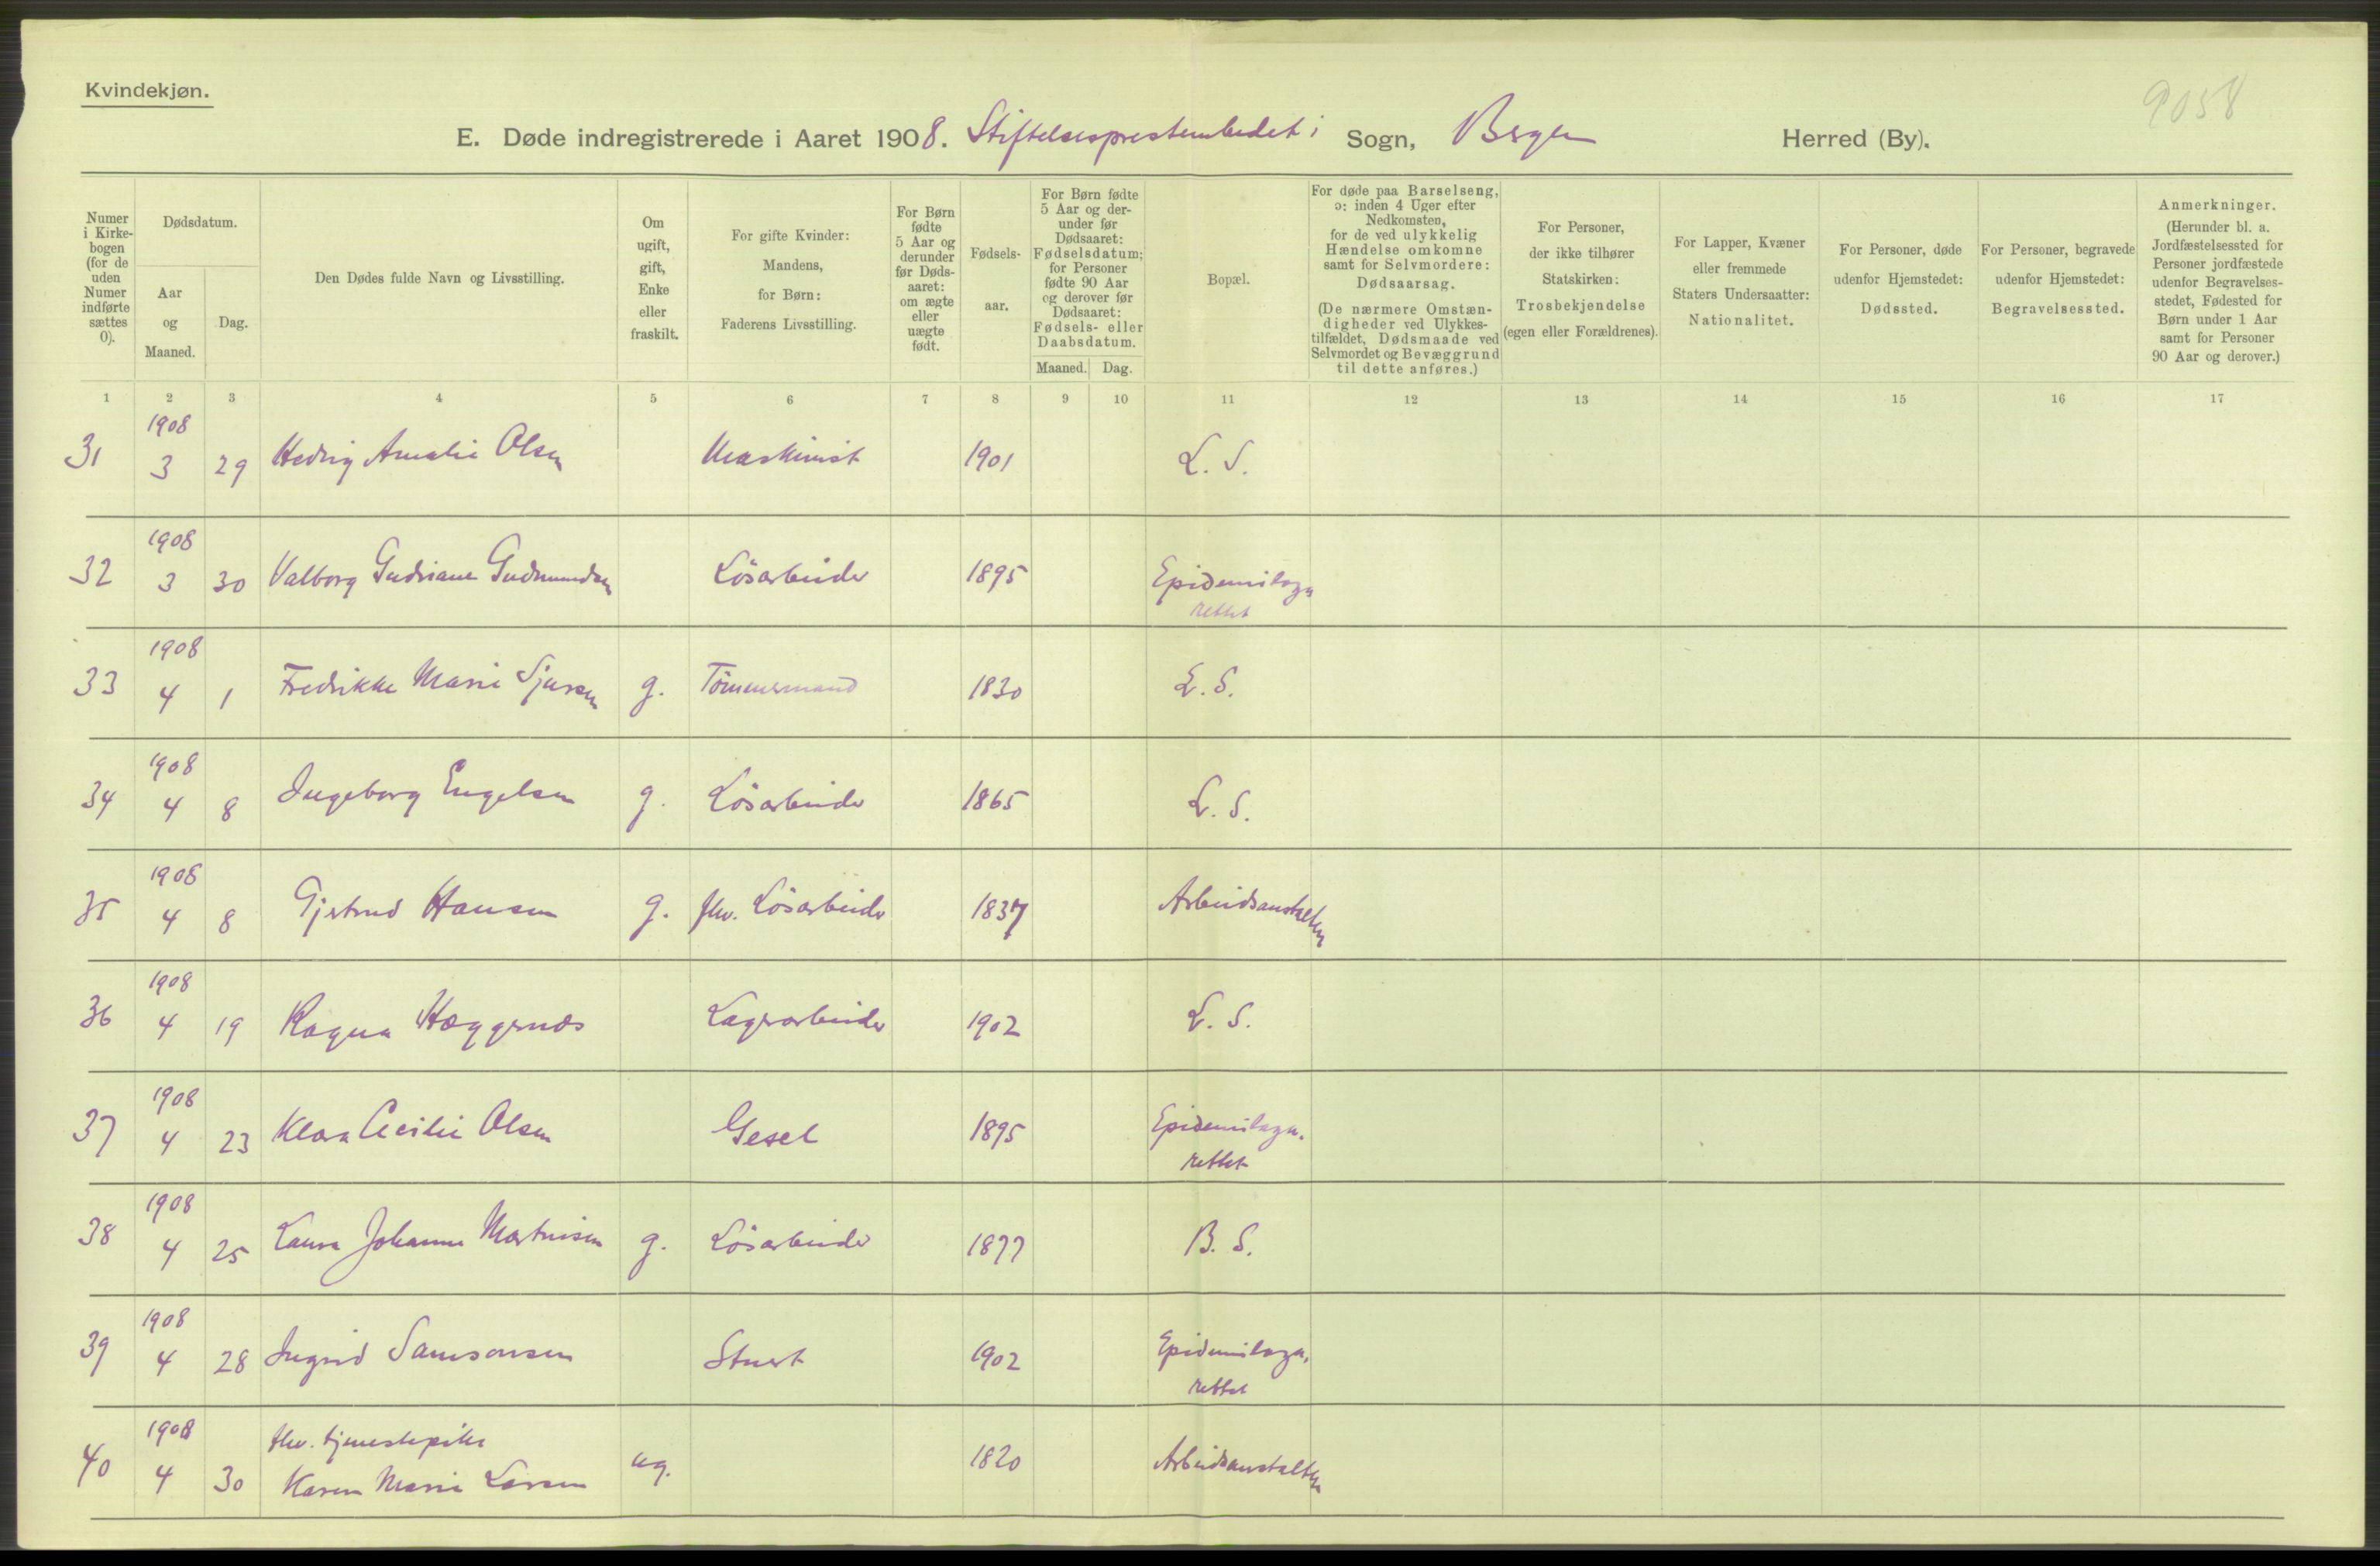 Kvindekjøn.
9058
E. Døde indregistrerede i Aaret 1908. Stiftelsesprestembedet i Sogn, Bergen Herred (By).
Numer i Kirkebogen (for de uden Numer indførte sættes 0).
Dødsdatum.
Aar og Maaned.
Dag.
Den Dødes fulde Navn og Livsstilling.
Om ugift, gift, Enke eller fraskilt.
For gifte Kvinder: Mandens, for Børn: Faderens Livsstilling.
For Børn fødte 5 Aar og derunder før Dødsaaret: om ægte eller uægte født.
Fødselsaar.
For Børn fødte 5 Aar og derunder før Dødsaaret: Fødselsdatum; for Personer fødte 90 Aar og derover før Dødsaaret: Fødsels- eller Daabsdatum.
Maaned. Dag.
Bopæl.
For døde paa Barselseng, ɔ: inden 4 Uger efter Nedkomsten, for de ved ulykkelig Hændelse omkomne samt for Selvmordere: Dødsaarsag. (De nærmere Omstændigheder ved Ulykkestilfældet, Dødsmaade ved Selvmordet og Bevæggrund til dette anføres.)
For Personer, der ikke tilhører Statskirken: Trosbekjendelse (egen eller Forældrenes).
For Lapper, Kvæner eller fremmede Staters Undersaatter: Nationalitet.
For Personer, døde udenfor Hjemstedet: Dødssted.
For Personer, begravede udenfor Hjemstedet: Begravelsessted.
Anmerkninger. (Herunder bl. a. Jordfæstelsessted for Personer jordfæstede udenfor Begravelsesstedet, Fødested for Børn under 1 Aar samt for Personer 90 Aar og derover.)
1 2 3 4 5 6 7 8 9 10 11 12 13 14 15 16 17
31 1908 3 29 Hedvig Amalie Olsen Maskinist 1901 L. S.
32 1908 3 30 Valborg Gudriane Gudmundsen Løsarbeider 1895 Epidemilaza
rettet
33 1908 4 1 Fredrikke Marie Sjursen g. Tømmermand 1830 L. S.
34 1908 4 8 Ingeborg Engelsen g. Løsarbeider 1865 L. S.
35 1908 4 8 Gjertrud Hansen g. fhv. Løsarbeider 1837 Arbeidsanstalten
36 1908 4 19 Ragna Hæggernæs Lagerarbeider 1902 L. S.
37 1908 4 23 Klara Cecilie Olsen Gesel 1895 Epidemilaza.
rettet
38 1908 4 25 Laura Johanne Martinsen g. Løsarbeider 1877 B. S.
39 1908 4 28 Ingrid Samsonsen Stuert 1902 Epidemilaza.
rettet
40 1908 4 30 fhv. tjenestepike
Karen Marie Larsen ug. 1820 Arbeidsanstalten